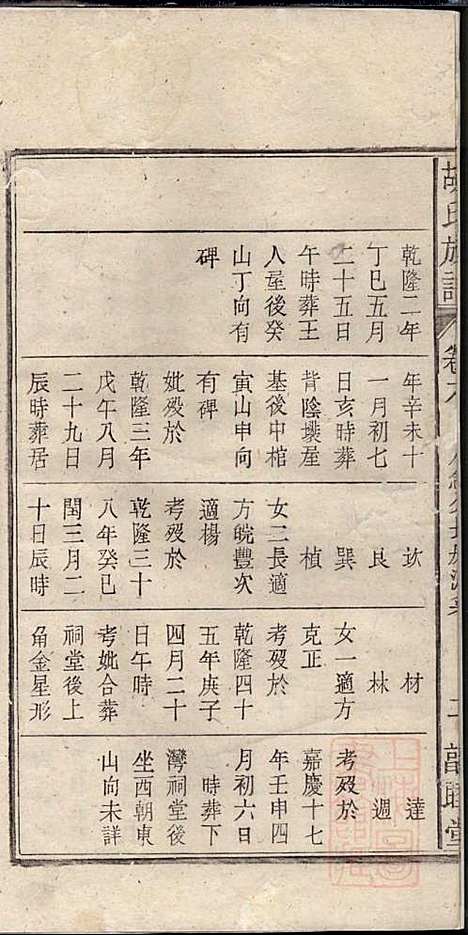 胡氏族譜
卷六
二
敦睦堂
乾隆二年
丁巳五月
二十五日
午時葬王
人屋後癸
山丁向有
碑
年辛未十
一月初七
日亥時葬
背陰垻屋
基後中棺
寅山申向
有碑
妣歿於
乾隆三年
戊午八月
二十九日
辰時葬居
坎
艮
巽
楨
女二長適
方皖豐次
適楊
考歿於
乾隆三十
八年癸巳
閏三月二
十日辰時
材
林
女一適方
克正
考歿於
乾隆四十
五年庚子
四月二十
日午時
考妣合葬
祠堂後上
角金星形
達
週
考歿於
嘉慶十七
年壬申四
月初六日
時葬下
灣祠堂後
坐西朝東
山向未詳